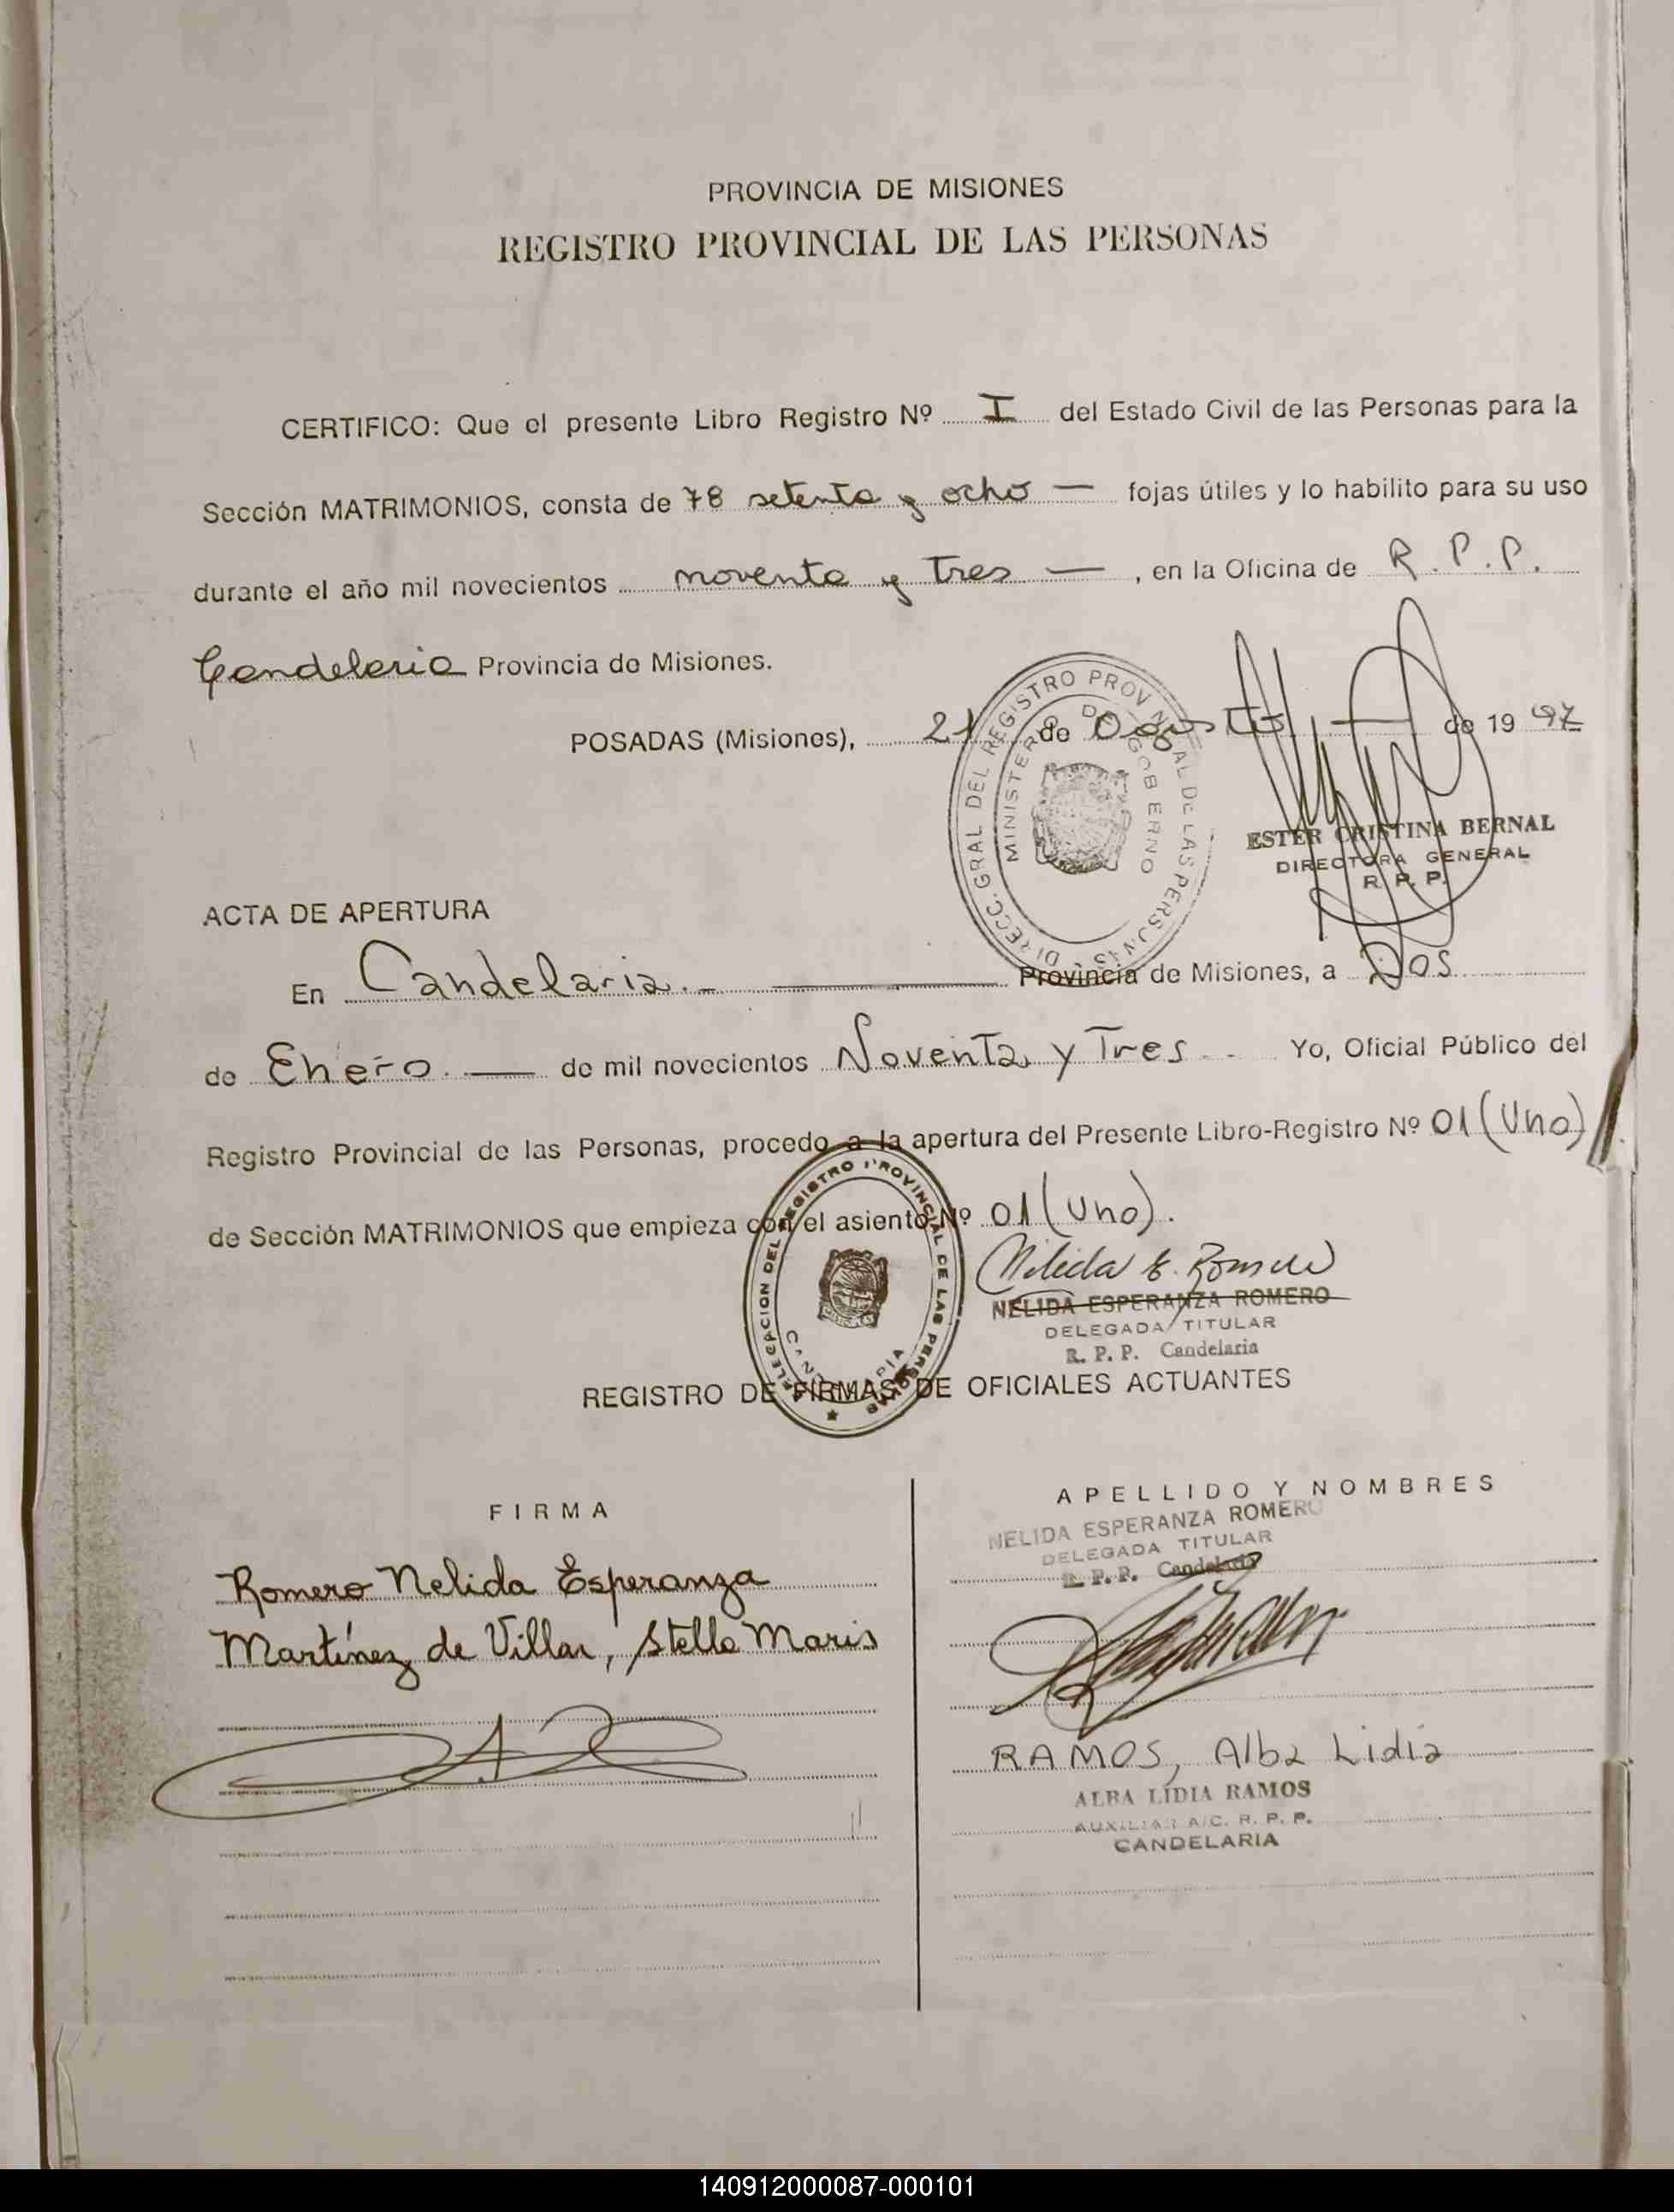 PROVINCIA DE MISIONES
REGISTRO PROVINCIAL DE LAS PERSONAS
CERTIFICO: Que el presente Libro Registro Nº I del Estado Civil de las Personas para la
Sección MATRIMONIOS, consta de 78 setenta y ocho — fojas útiles y lo habilito para su uso
durante el año mil novecientos noventa y tres — , en la Oficina de R.P.P.
Candelaria Provincia de Misiones.
POSADAS (Misiones), 21 de Agosto — de 1992
DIRECC. GRAL DEL REGISTRO PROVINCIAL DE LAS PERSONAS
MINISTERIO DE GOBIERNO
ESTER CRISTINA BERNAL
DIRECTORA GENERAL
R. P. P.
ACTA DE APERTURA
En Candelaria.- — Provincia de Misiones, a Dos
de Enero. — de mil novecientos Noventa y Tres - - Yo, Oficial Público del
Registro Provincial de las Personas, procedo a la apertura del Presente Libro-Registro Nº 01 (Uno)
de Sección MATRIMONIOS que empieza con el asiento Nº 01 (Uno).
DELEGACION DEL REGISTRO PROVINCIAL DE LAS PERSONAS
Nelida E. Romero
NELIDA ESPERANZA ROMERO
DELEGADA TITULAR
R. P. P. Candelaria
REGISTRO DE FIRMAS DE OFICIALES ACTUANTES
FIRMA
APELLIDO Y NOMBRES
NELIDA ESPERANZA ROMERO
DELEGADA TITULAR
R. P. P. Candelaria
Romero Nelida Esperanza
Martínez de Villar, Stella Maris
RAMOS, Alba Lidia
ALBA LIDIA RAMOS
AUXILIAR A/C. R. P. P.
CANDELARIA
140912000087-000101